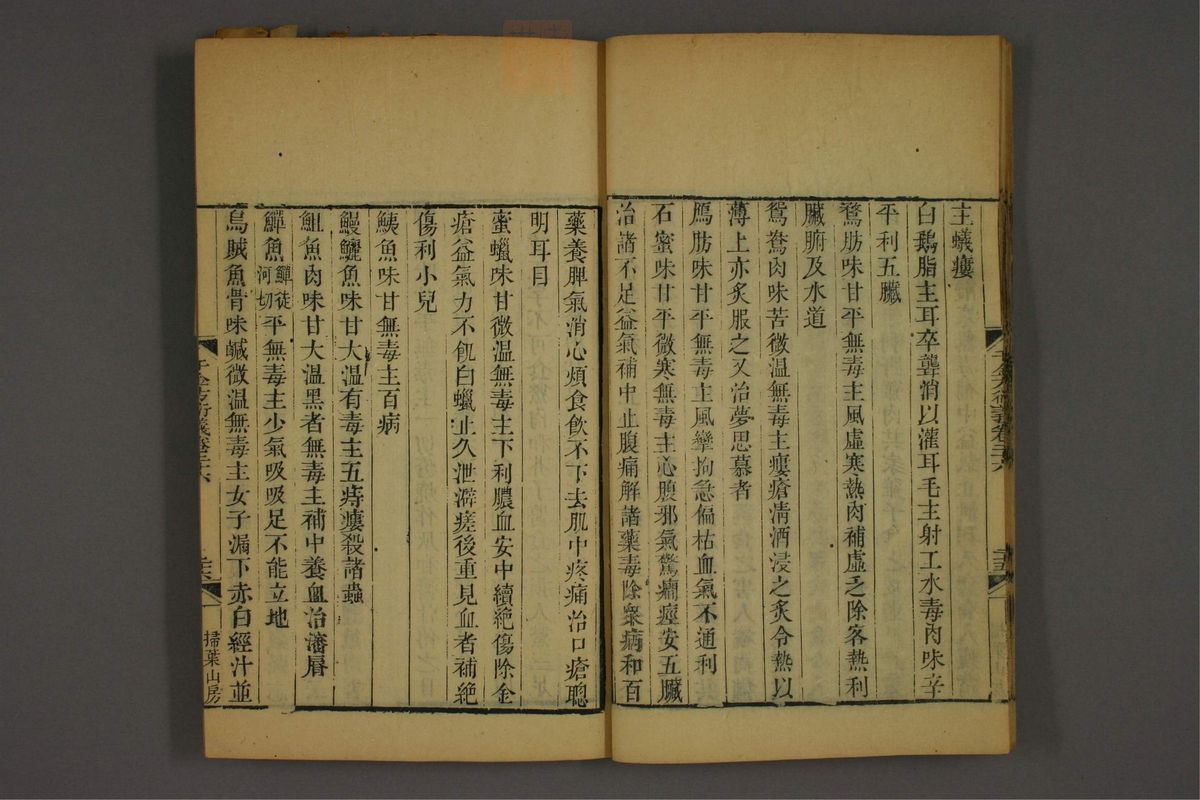 主蟻瘻
白鵝脂主耳卒聾消以灌耳毛主射工水毒肉味辛
平利五臟
鶩肪味甘平無毒主風虛寒熱肉補虛乏除客熱利
臟腑及水道
鴛鴦肉味苦微溫無毒主瘻瘡清酒浸之炙令熱以
薄上亦炙服之又治夢思慕者
鴈肪味甘平無毒主風攣拘急偏枯血氣不通利
石蜜味甘平微寒無毒主心腹邪氣驚癇痙安五臟
治諸不足益氣補中止腹痛解諸藥毒除衆病和百
藥養脾氣消心煩食飲不下去肌中疼痛治口瘡聰
明耳目
蜜蠟味甘微溫無毒主下利膿血安中續絕傷除金
瘡益氣力不飢白蠟止久泄澼瘥後重見血者補絕
傷利小兒
鮧魚味甘無毒主百病
鰻鱺魚味甘大溫有毒主五痔瘻殺諸蟲
䱇魚肉味甘大溫黑者無毒主補中養血治瀋脣
鱓魚鱓徒河切平無毒主少氣吸吸足不能立地
烏賊魚骨味鹹微溫無毒主女子漏下赤白經汁並
千金方衍義卷二十六
掃葉山房